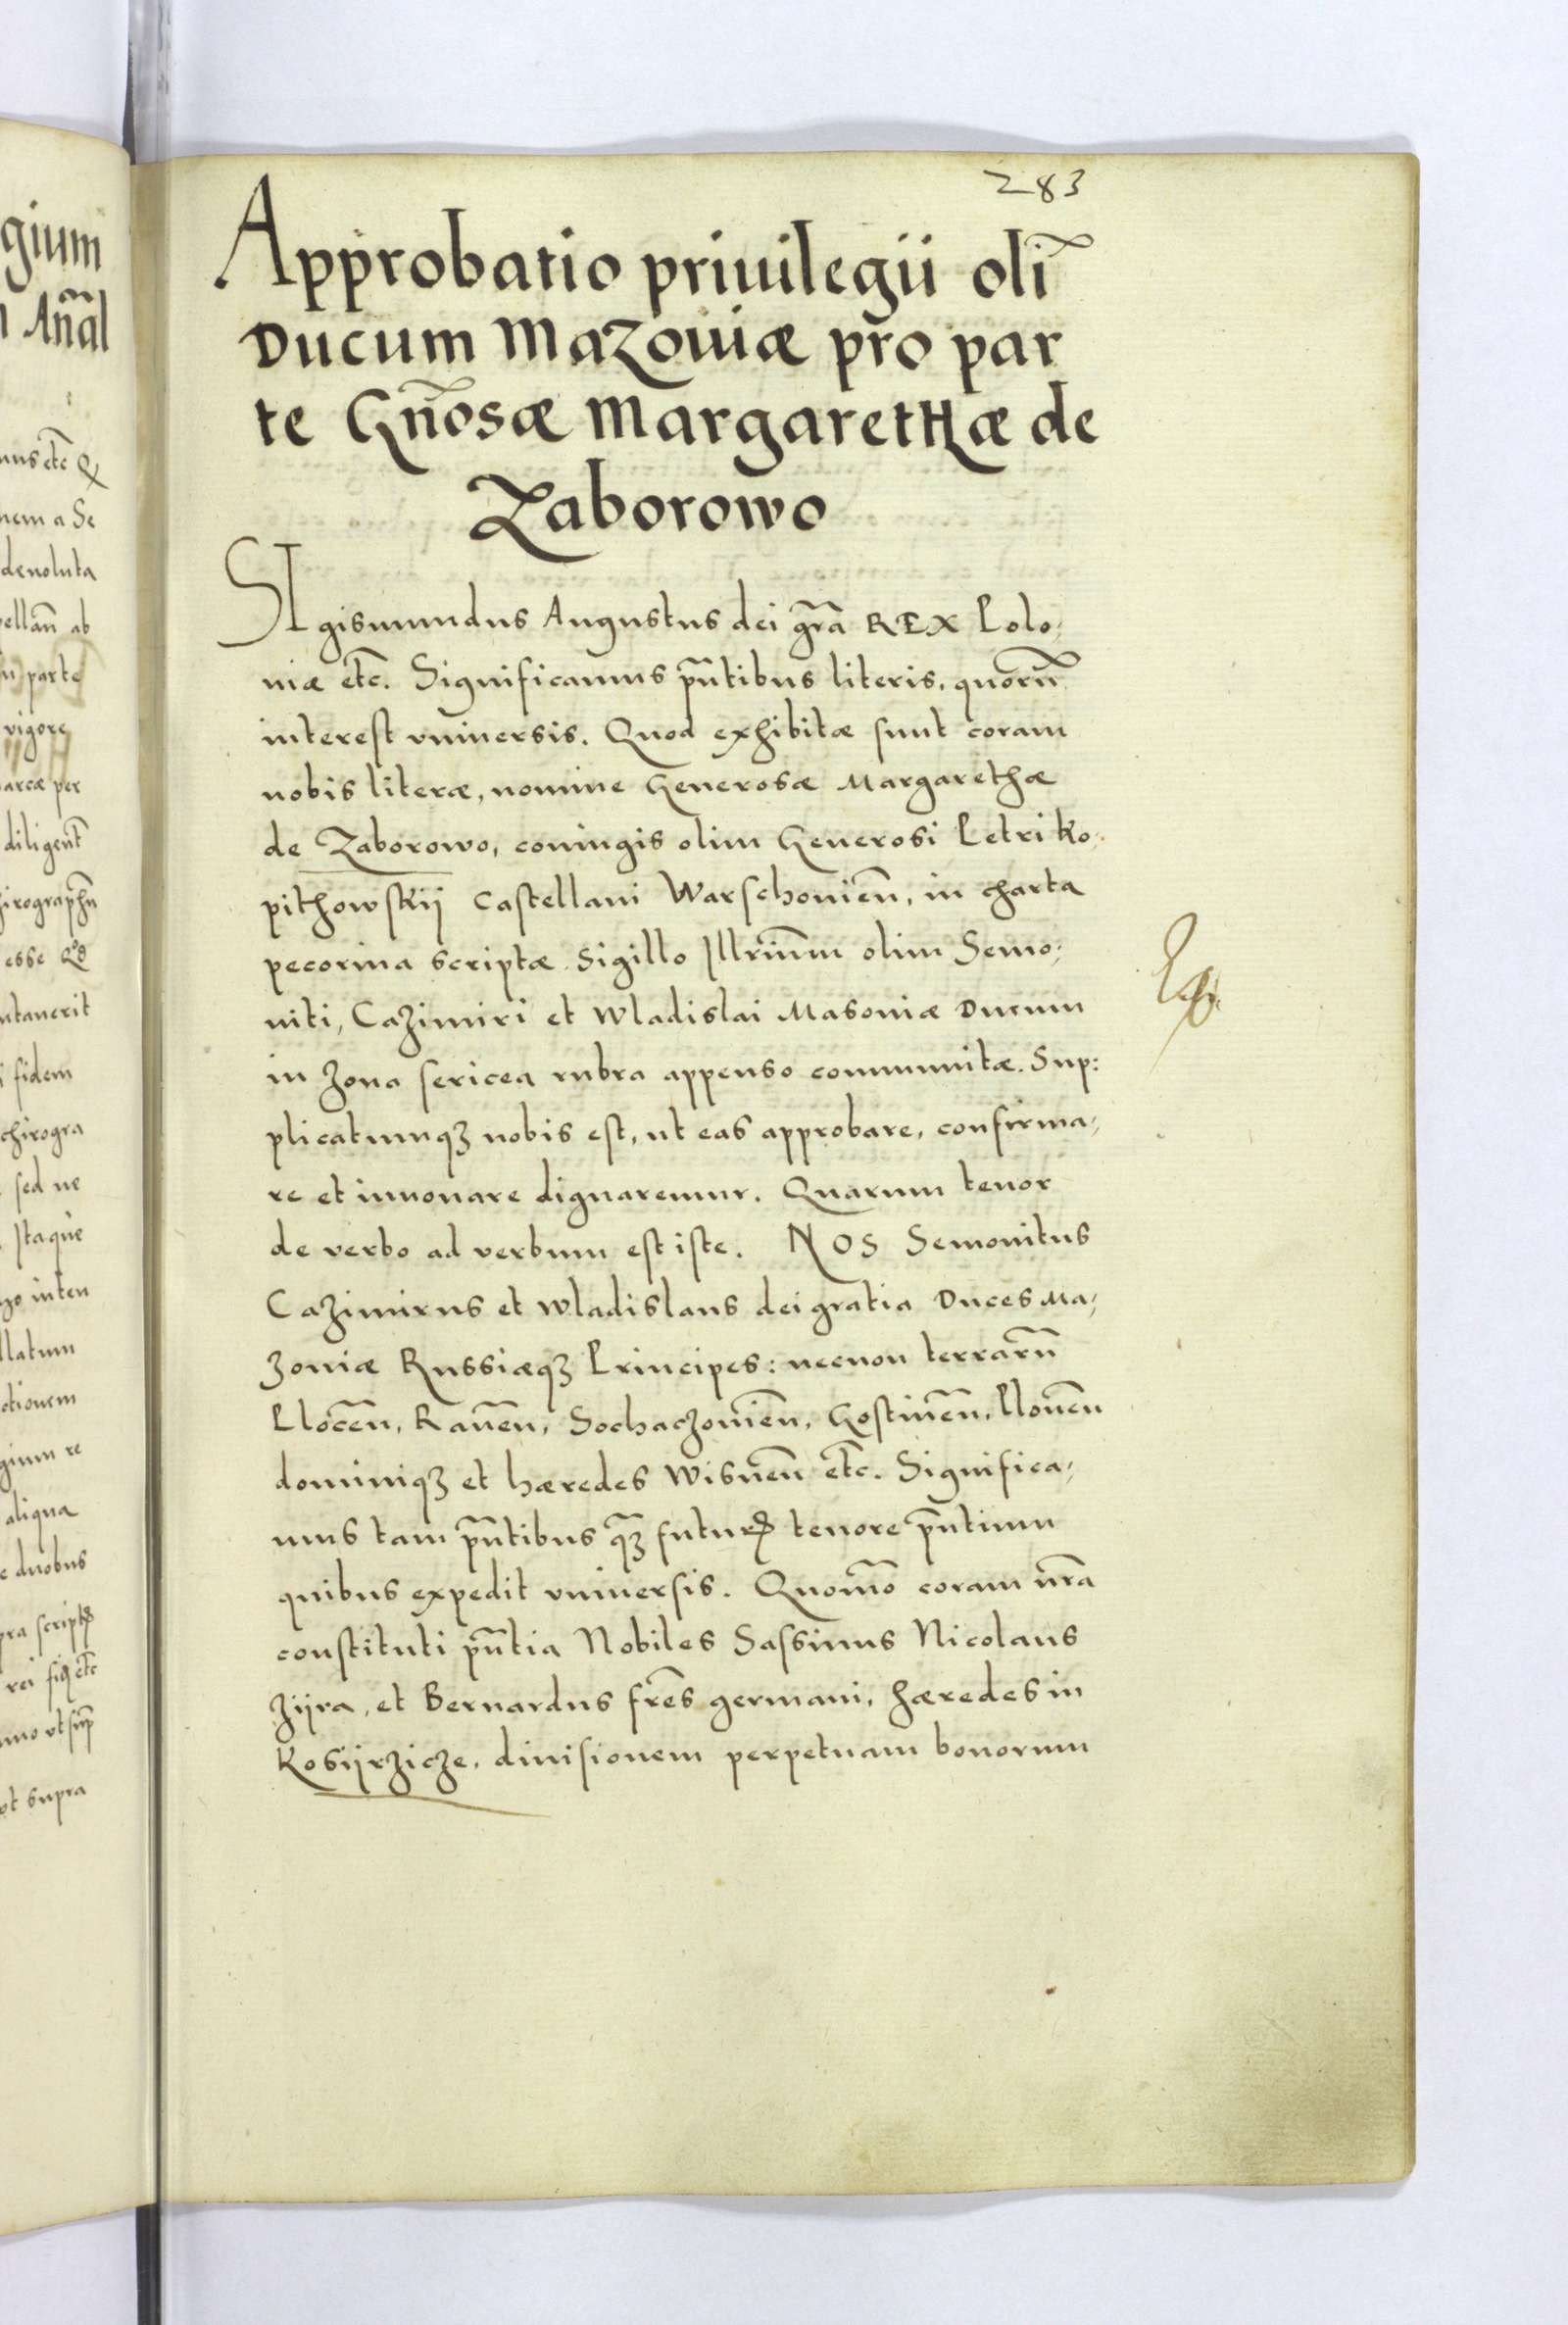 283
Approbatio priuilegii oli͂
Ducum Mazouiæ pro par
te Gn͂osæ Margarethæ de
Zaborowo
SIgismundus Augustus dei gr͂a REX Polo,
niæ etc͂. Significamus pn͂tibus literis, quoru͂
interest vniuersis. Quod exhibitæ sunt coram
nobis literæ, nomine Generosæ Margarethæ
de Zaborowo, coniugis olim Generosi Petri Ko,
pithowskij Castellani Warschouien͂, in charta
pecorina scriptæ Sigillo Illrium͂ olim Semo,
uiti, Cazimiri et Wladislai Masouiæ Ducum
in zona sericea rubra appenso communitæ. Sup:
plicatumqȝ nobis est, ut eas approbare, confirma,
re et innouare dignaremur. Quarum tenor
de verbo ad verbum est iste. NOS Semouitus
Cazimirus et Wladislaus dei gratia Duces Ma,
zouiæ Russiæqȝ Principes: necnon terraru͂
Plocen͂, Rauen͂, Sochaczouien͂, Gostinen͂, Plouen͂
dominiqȝ et hæredes Wisnen͂ etc͂. Significa,
mus tam pn͂tibus qȝ͂ futurꝭ tenore pn͂tium
quibus expedit vniuersis. Quom͂o coram nr͂a
constituti pn͂tia Nobiles Sassinus Nicolaus
Zijra, et Bernardus fre͂s germani, hæredes in
Kosijrzicze, diuisionem perpetuam bonorum
gium
An͂al
etc͂
nem a Se
deuoluta
pellan͂ ab
parte
vigore
arcæ per
diligent͂
hirographu͂
esse
utauerit
fidem
chirogra
sed ne
Itaque
inten
llatum
ctionem
gium re
aliqua
duobus
pra scriptꝭ
rei etc͂
ut sup͂
ut supra